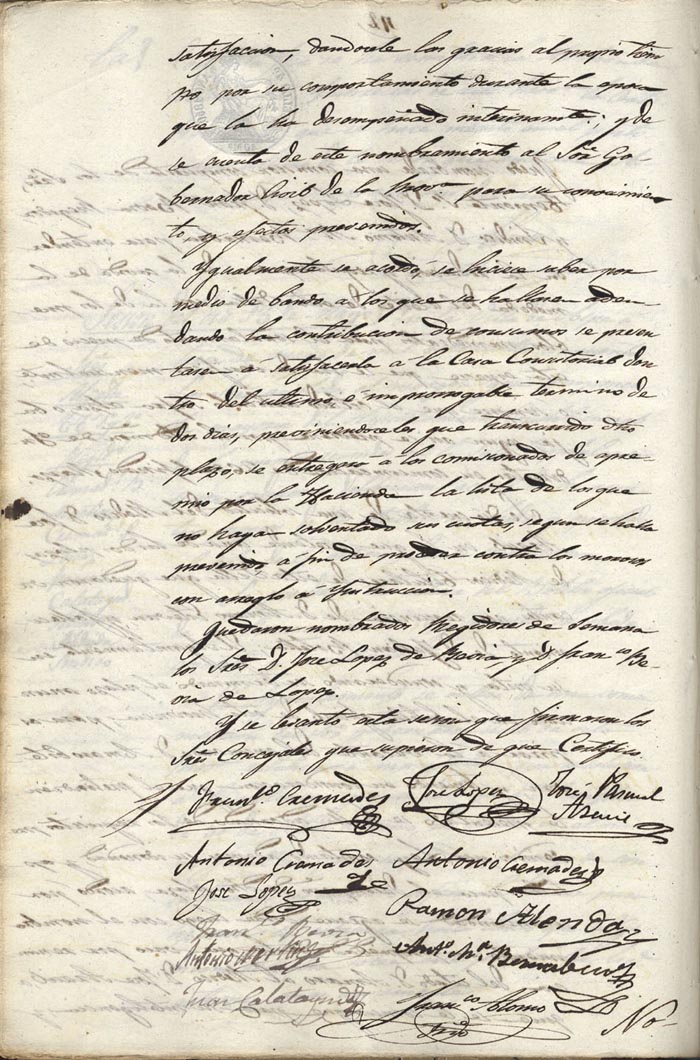 satisfaccion, dandosele las gracias al propio tiem
po por su comportamiento durante la epoca
que la ha desempeñado interinamte; y de
se cuenta de este nombramiento al Sor. Go-
bernador Civil de la Prova. para su conocimien
to, y efectos prevenidos.
Ygualmente se acordó, se hiciese saber por
medio de bando a los que se hallaren adeu
dando la contribucion de consumos se presen
tasen á satisfacerla á la Casa Consistorial den
tro del ultimo é improrrogable termino de
dos dias, previniendoceles que transcurrido dho
plazo, se entregará á los comisionados de apre
mio por la Hacienda la lista de los que
no hayan solventado sus cuotas, segun se halla
prevenido á fin de proceder contra los morosos
con arreglo á Ynstruccion.
Quedaron nombrados Regidores de Semana
los Sres. D. Jose Lopez de y D. Franco. Be
ria de Lopez.
Y se levantó esta sesion que firmaron los
Sres. Concejales que supieron de que Certifico.
Cremades José Lopez José Pascual
Antonio Granados Antonio Cremades
José Lopez
Ramon Alenda
Antonio Anto. Ma. Bernabeu
Juan Calatayud Franco. Alomo
No-